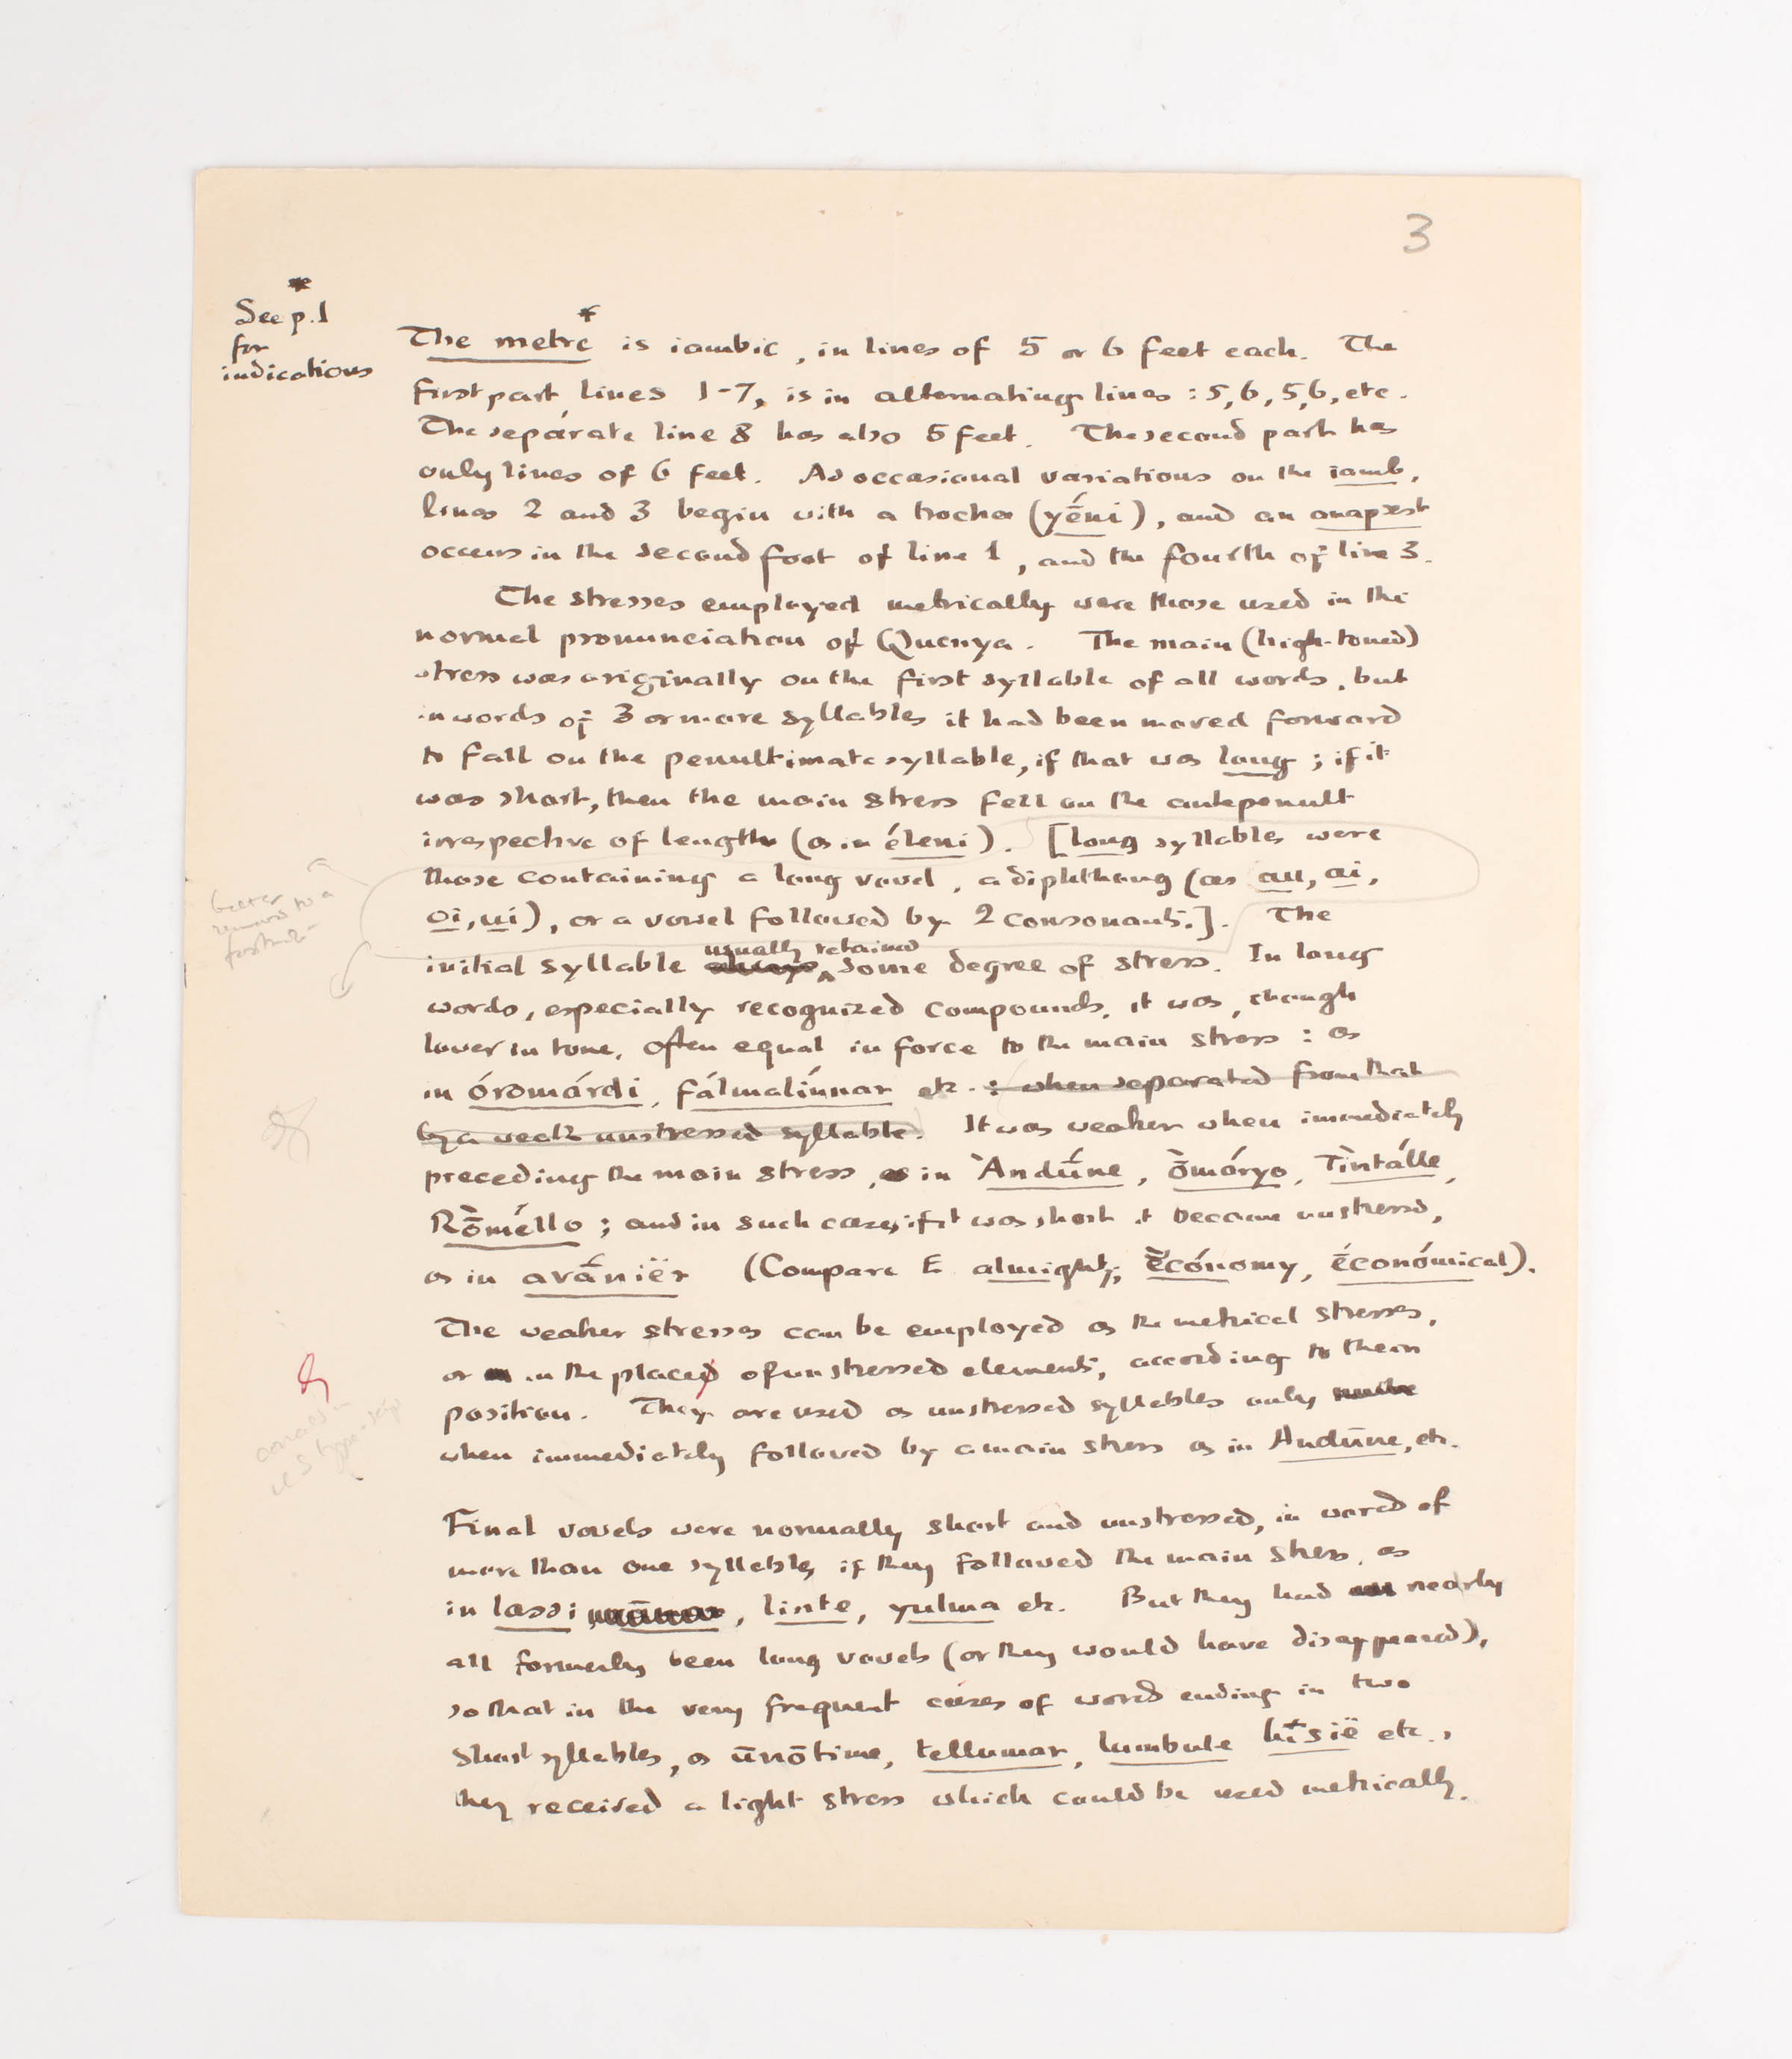 3
*
See p.1
for
indications
The metre* is iambic, in lines of 5 or 6 feet each. The
first part, lines 1-7, is in alternating lines : 5,6,5,6, etc.
The separate line 8 has also 5 feet. The second part has
only lines of 6 feet. As occasional variations on the iamb,
lines 2 and 3 begin with a trochee (yḗni), and an anapæst
occurs in the second foot of line 1, and the fourth of line 3.
The stresses employed metrically were those used in the
normal pronunciation of Quenya. The main (high-toned)
stress was originally on the first syllable of all words, but
in words of 3 or more syllables it had been moved forward
to fall on the penultimate syllable, if that was long ; if it
was short, then the main stress fell on the antepenult
irrespective of length (as in éleni). [long syllables were
those containing a long vowel, a diphthong (as au, ai,
oi, ui), or a vowel followed by 2 consonants.]. The
initial syllable always usually retained some degree of stress. In long
words, especially recognized compounds, it was, though
lower in tone, often equal in force to the main stress : as
in óromárdi, fálmalínnar etc. : when separated from that
by a weak unstressed syllable. It was weaker when immediately
preceding the main stress, as in Àndū́ne, ṑmáryo, Tìntálle,
Rṑméllo ; and in such cases, if it was short it became unstressed,
as in avā́niër (Compare E almighty; ècónomy, éconómical).
The weaker stresses can be employed as the metrical stresses,
or in the place of unstressed elements, according to their
position. They are used as unstressed syllables only
when immediately followed by a main stress as in Andūne, etc.
Final vowels were normally short and unstressed, in words of
more than one syllable, if they followed the main stress, as
in lassi, linte, yulma etc. But they had nearly
all formerly been long vowels (or they would have disappeared),
so that in the very frequent cases of words ending in two
short syllables, as ūnōtime, tellumar, lumbule hīsië etc.,
they received a light stress which could be used metrically.
better
removed to a
footnote